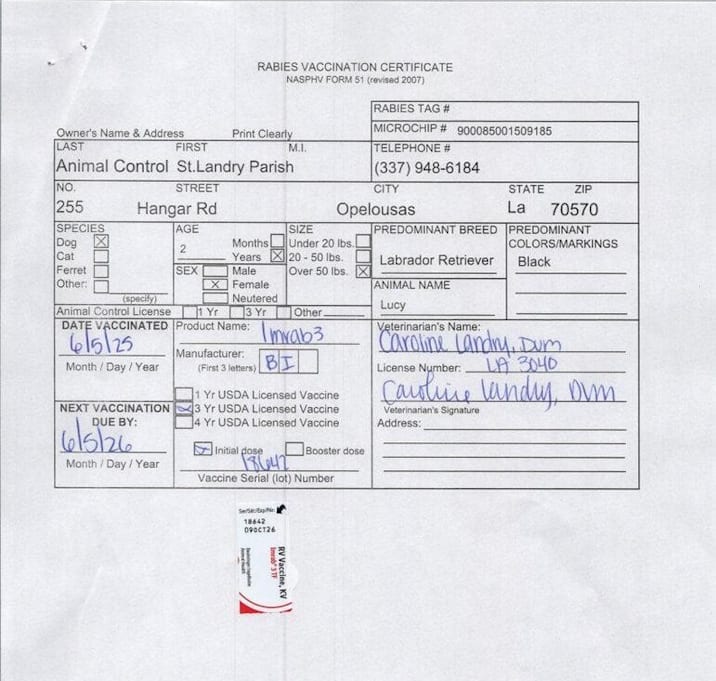 RABIES VACCINATION CERTIFICATE
NASPHV FORM 51 (revised 2007)
RABIES TAG #
Owner's Name & Address Print Clearly
MICROCHIP # 900085001509185
LAST FIRST M.I.
TELEPHONE #
Animal Control St.Landry Parish
(337) 948-6184
NO. STREET CITY STATE ZIP
255 Hangar Rd Opelousas La 70570
SPECIES
Dog
Cat
Ferret
Other:
(specify)
AGE
2
Months
Years
SEX
Male
Female
Neutered
SIZE
Under 20 lbs.
20 - 50 lbs.
Over 50 lbs.
PREDOMINANT BREED
Labrador Retriever
ANIMAL NAME
Lucy
PREDOMINANT
COLORS/MARKINGS
Black
Animal Control License 1 Yr 3 Yr Other
DATE VACCINATED
6/5/25
Month / Day / Year
NEXT VACCINATION
DUE BY:
6/5/26
Month / Day / Year
Product Name: Imrab3
Manufacturer: BI
(First 3 letters)
1 Yr USDA Licensed Vaccine
3 Yr USDA Licensed Vaccine
4 Yr USDA Licensed Vaccine
Initial dose Booster dose
18642
Vaccine Serial (lot) Number
Veterinarian's Name:
Caroline Landry, DVM
License Number: LA 3040
Caroline Landry, DVM
Veterinarian's Signature
Address:
Ser/Sér/Exp/No:
18642
09OCT26
RV Vaccine, KV
Imrab® 3 TF
Boehringer Ingelheim
Animal Health